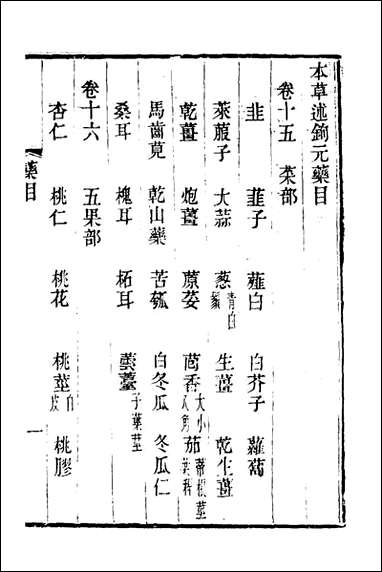 本草述鉤元藥目
卷十五 菜部
韭 韭子 薤白 白芥子 蘿蔔
萊菔子 大蒜 葱 青白鬚 生薑 乾生薑
乾薑 炮薑 蒝荽 茴香 大小八角 茄
馬齒莧 乾山藥 苦瓠 白冬瓜 冬瓜仁
桑耳 槐耳 柘耳 薹 子葉莖
卷十六 五果部
杏仁 桃仁 桃花 桃莖 白皮 桃膠
藥目 一